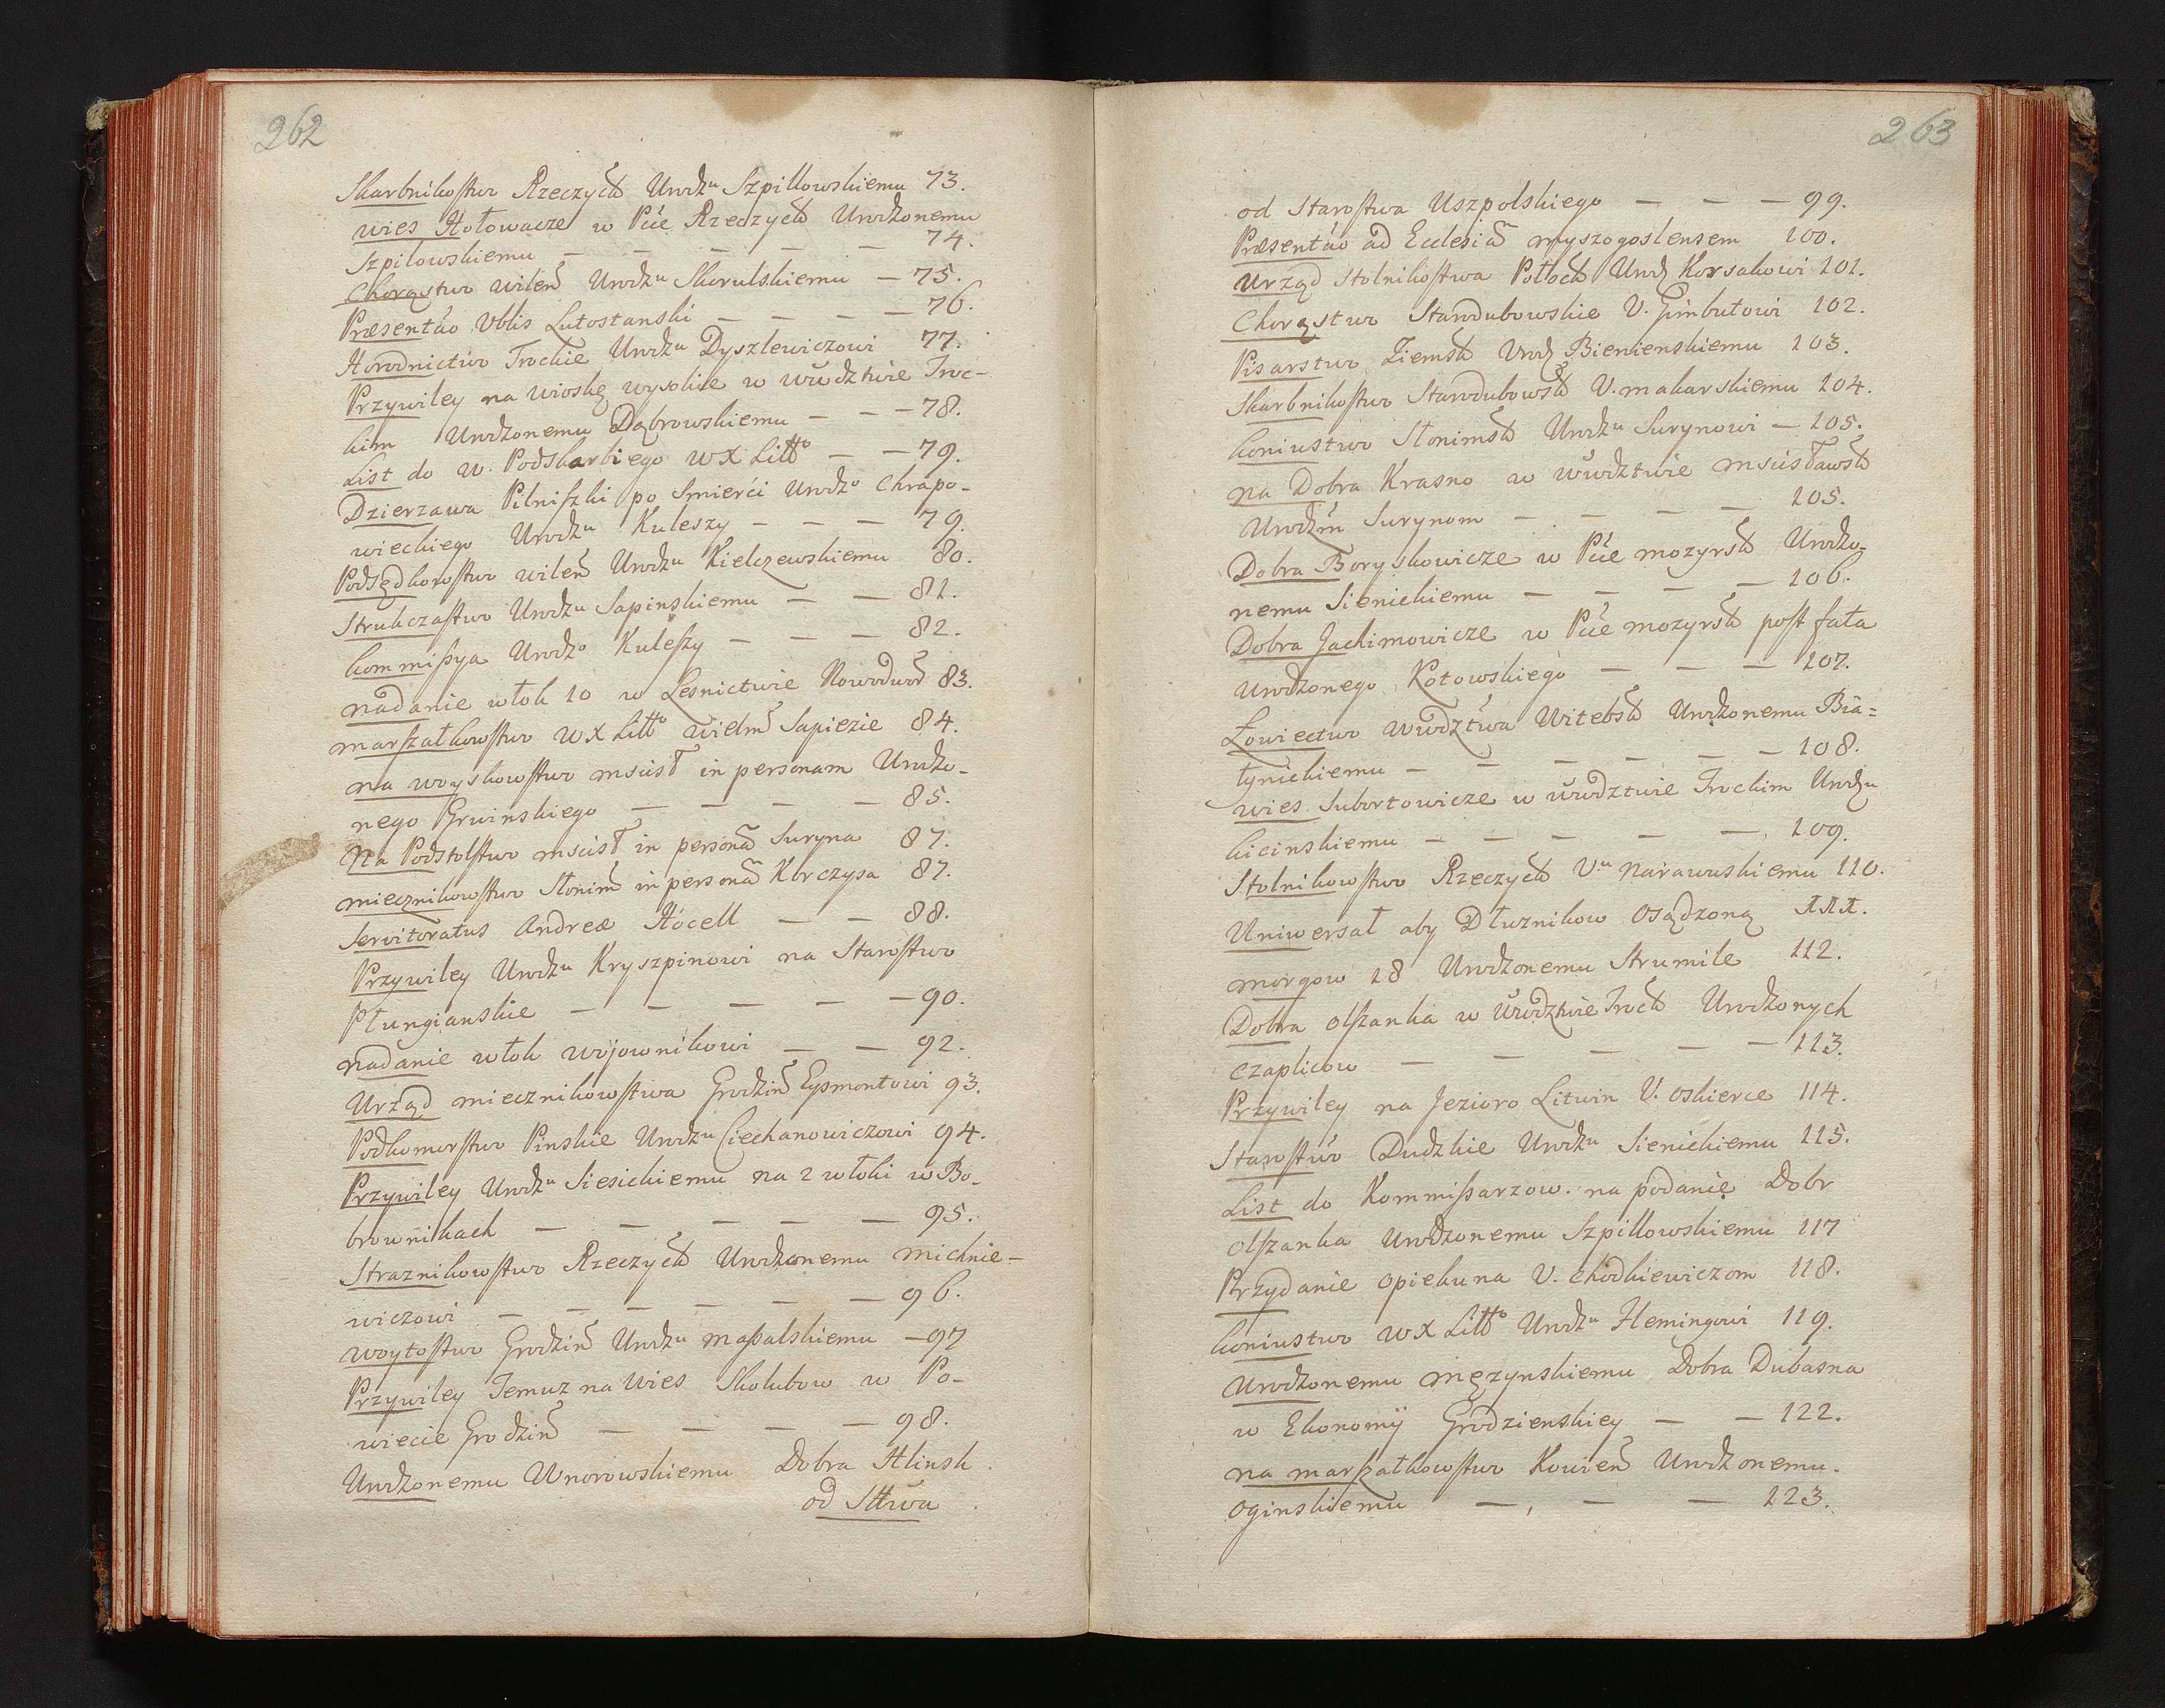 262
Skarbnikostwo Rzeczyck Urodzu Szpillowskiemu 73.
wies Hołowacze w Pcie Rzeczyck Urodzonemu
Szpilowskiemu — — — — — 74.
Chorąstwo wilen Urodzu Skorulskiemu — 75.
Præsentao Vblis Lutostanski — — — — 76.
Horodnictwo Trockie Urodzu Dyszlewiczowi 77.
Przywiley na wioskę wysokie w wwdztwie Troc-
kim Urodzonemu Dąbrowskiemu — — — 78.
List do w. Podskarbiego WX Litto — — 79.
Dzierzawa Pilniszki po Smierci Urodzo Chrapo-
wickiego Urodzu Kuleszy — — — 79.
Podsędkowstwo wilen Urodzu Kielczewskiemu 80.
Strukczastwo Urodzu Sapinskiemu — — 81.
kommissya Urodzo Kuleszy — — — 82.
nadanie włok 10 w Lesnictwie Nowodwor 83.
marszałkowstwo WX Litto wielm Sapiezie 84.
na woyskowstwo mscisł in personam Urodzo-
nego Gruinskiego — — — — 85.
Na Podstolstwo mscisł in persona Suryna 87.
miecznikowstwo Słonim in persona Korczysa 87.
Servitoratus Andreæ Höcell — — 88.
Przywiley Urodzu Kryszpinowi na Starostwo
Płungianskie — — — — — 90.
nadanie włok woјownikowi — — 92.
Urząd miecznikowstwa Grodzin Eysmontowi 93.
Podkomorstwo Pinskie Urodzu Ciechanowiczowi 94.
Przywiley Urodzu Siesickiemu na 2 włoki w Bo-
brownikach — — — — — 95.
Straznikowstwo Rzeczyck Urodzonemu michnie-
wiczowi — — — — — — 96.
woytostwo Grodzin Urodzu massalskiemu — 97
Przywiley Temuz na Wies Skolubow w Po-
wiecie Grodzin — — — — 98.
Urodzonemu Wnorowskiemu Dobra Hlinsk.
od Sttwa
263
od Starostwa Uszpolskiego — — — 99.
Præsentao ad Ecclesia myszogoslensem 100.
Urząd Stolnikostwa Połock Urodz Korsakowi 101.
Chorąstwo Starodubowskie V. Gimbutowi 102.
Pisarstwo Ziemsk Urodz Bienienskiemu 103.
Skarbnikostwo Starodubowsk V. makarskiemu 104.
koniustwo Słonimsk Urodzu Surynowi — 105.
na Dobra Krasno w wwdztwie mscisławsk
Urodzm Surynom — — — — 105.
Dobra Boryskowicze w Pcie mozyrsk Urodzo-
nemu Sienickiemu — — — — 106.
Dobra Jachimowicze w Pcie mozyrsk post fata
Urodzonego Kotowskiego — — — 107.
Łowiectwo wwdztwa Witebsk Urodzonemu Bia=
łynickiemu — — — — — 108.
wies Subortowicze w wwdztwie Trockim Urodzu
kicinskiemu — — — — — 109.
Stolnikowstwo Rzeczyck Vu Narawuskiemu 110.
Uniwersał aby Dłuznikow osądzoną 111.
morgow 18 Urodzonemu Strumile 112.
Dobra olszanka w wwdztwie Trock Urodzonych
czaplicow — — — — — 113.
Przywiley na Jezioro Litwin V. oskierce 114.
Starostwo Dudzkie Urodzu Sienickiemu 115.
List do Kommissarzow. na podanie Dobr
olszanka Urodzonemu Szpillowskiemu 117
Przydanie opiekuna V. chodkiewiczom 118.
koniustwo WX Litto Urodzu Flemingowi 119.
Urodzonemu męzynskiemu Dobra Dubasna
w Ekonomij Grodzienskiey — — 122.
na marszałkowstwo Kowien Urodzonemu.
oginskiemu — — — 123.